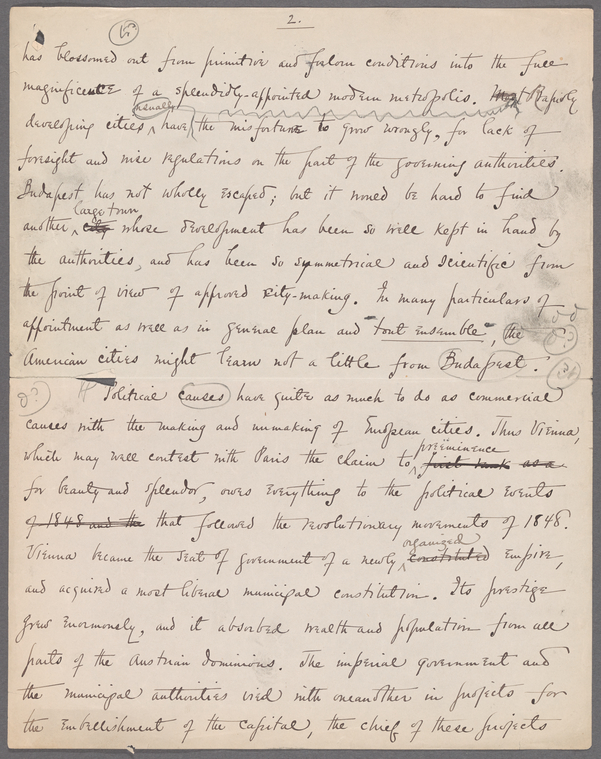 2.
has blossomed out from primitive and forlorn conditions into the full
magnificence of a splendidly-appointed modern metropolis. Most Rapidly
usually
developing cities have the misfortune to grow wrongly, for lack of
foresight and wise regulations on the part of the governing authorities.
Budapest has not wholly escaped; but it would be hard to find
large town
another city whose development has been so well kept in hand by
the authorities, and has been so symmetrical and scientific from
the point of view of approved city-making. In many particulars of
appointment as well as in general plan and "tout ensemble", the
American cities might learn not a little from Budapest.
Political causes have quite as much to do as commercial
causes with the making and unmaking of European cities. Thus Vienna,
preëminence
which may well contest with Paris the claim to first rank as a
for beauty and splendor, owes everything to the political events
of 1848 and the that followed the revolutionary movements of 1848.
organized
Vienna became the seat of government of a newly constituted Empire,
and acquired a most liberal municipal constitution. Its prestige
grew enormously, and it absorbed wealth and population from all
parts of the Austrian dominions. The imperial government and
the municipal authorities vied with oneanother in projects for
the embellishment of the capital, the chief of these projects